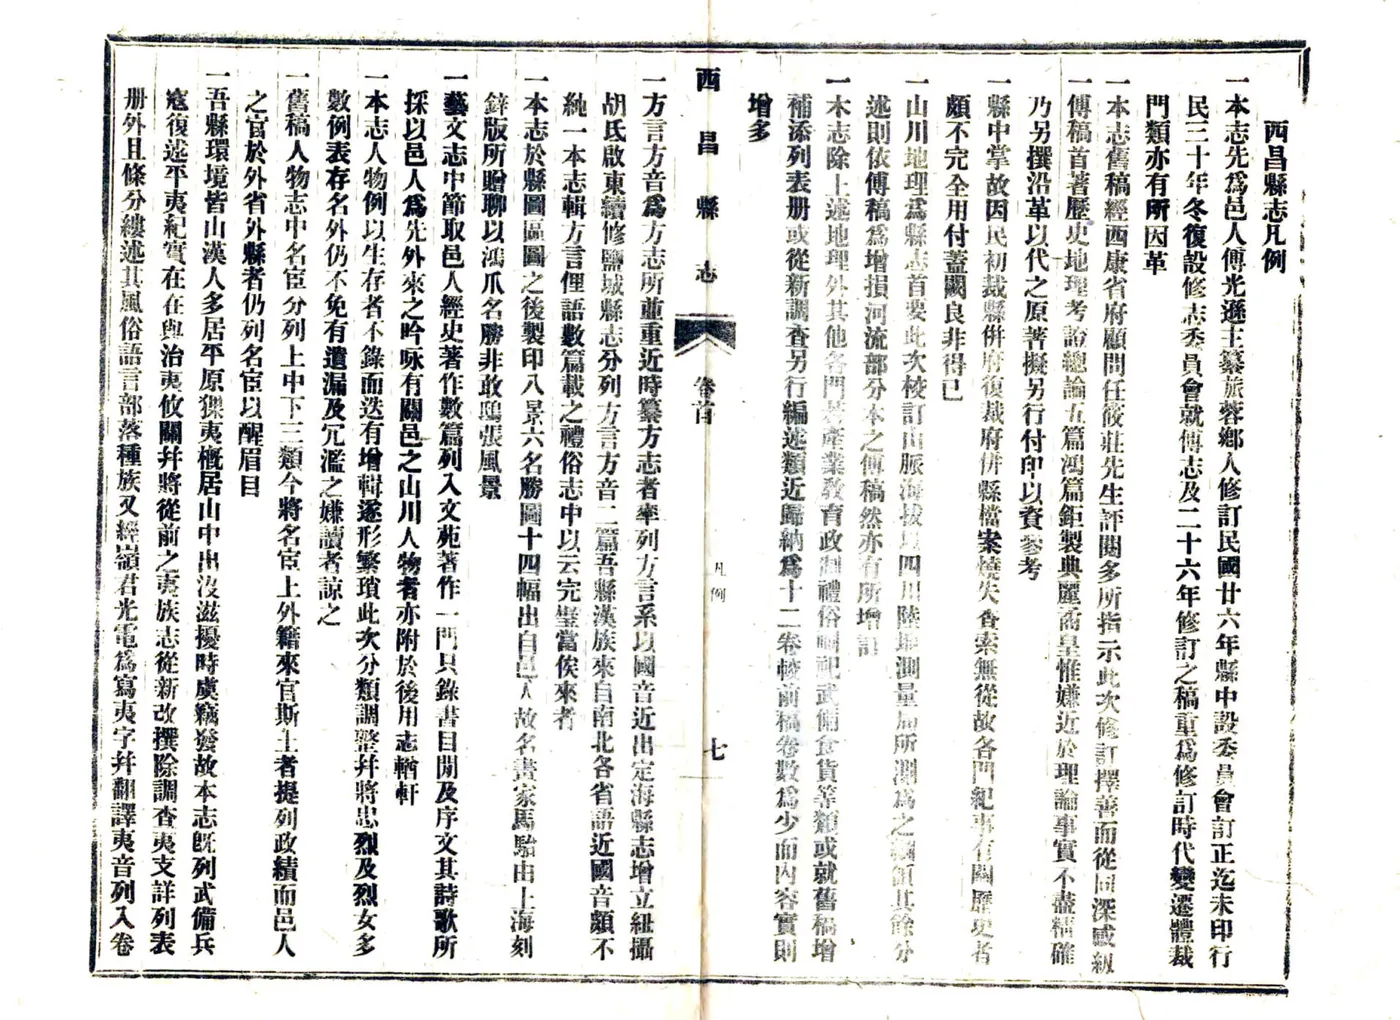 西昌縣志凡例
一本志先爲邑人傅光遜主纂旅蓉鄉人修訂民國廿六年縣中設委員會訂正迄未印行
民三十年冬復設修志委員會就傅志及二十六年修訂之稿重爲修訂時代變遷體裁
門類亦有所因革
一本志舊稿經西康省府顧問任筱莊先生評閱多所指示此次修訂擇善而從同深感級
傅稿首著歷史地理考證總論五篇鴻篇鉅製典麗矞皇惟嫌近於理論事實不盡精確
乃另撰沿革以代之原著擬另行付印以資參考
一縣中掌故因民初裁縣併府復裁府併縣檔案燒失查索無從故各門紀事有關歷史者
頗不完全用付蓋闕良非得已
一山川地理爲縣志首要此次校訂山脈海拔以四川陸地測量局所測爲之綱領其餘分
述則依傅稿爲增損河流部分本之傅稿然亦有所增訂
一本志除上述地理外其他各門若產業敎育政制禮俗祠祀武備食貨等類或就舊稿增
補添列表册或從新調查另行編述類近歸納爲十二卷較前稿卷數爲少而內容實則
增多
西昌縣志
卷首
凡例
七
一方言方音爲方志所並重近時纂方志者率列方言系以國音近出定海縣志增立紐攝
胡氏啟東續修鹽城縣志分列方言方音二篇吾縣漢族來自南北各省語近國音頗不
純一本志輯方言俚語數篇載之禮俗志中以云完璧當俟來者
一本志於縣圖區圖之後製印八景六名勝圖十四幅出自邑人故名畫家馬駘由上海刻
鋅版所贈聊以鴻爪名勝非敢鴟張風景
一藝文志中節取邑人經史著作數篇列入文苑著作一門只錄書目間及序文其詩歌所
採以邑人爲先外來之吟咏有關邑之山川人物者亦附於後用志輶軒
一本志人物例以生存者不錄而迭有增輯遂形繁瑣此次分類調整幷將忠烈及烈女多
數例表存名外仍不免有遺漏及冗濫之嫌讀者諒之
一舊稿人物志中名宦分列上中下三類今將名宦上外籍來官斯土者提列政績而邑人
之官於外省外縣者仍列名宦以醒眉目
一吾縣環境皆山漢人多居平原猓夷概居山中出沒滋擾時虞竊發故本志旣列武備兵
寇復述平夷紀實在在與治夷攸關幷將從前之夷族志從新改撰除調查夷支詳列表
册外且條分縷述其風俗語言部落種族又經嶺君光電爲寫夷字幷翻譯夷音列入卷